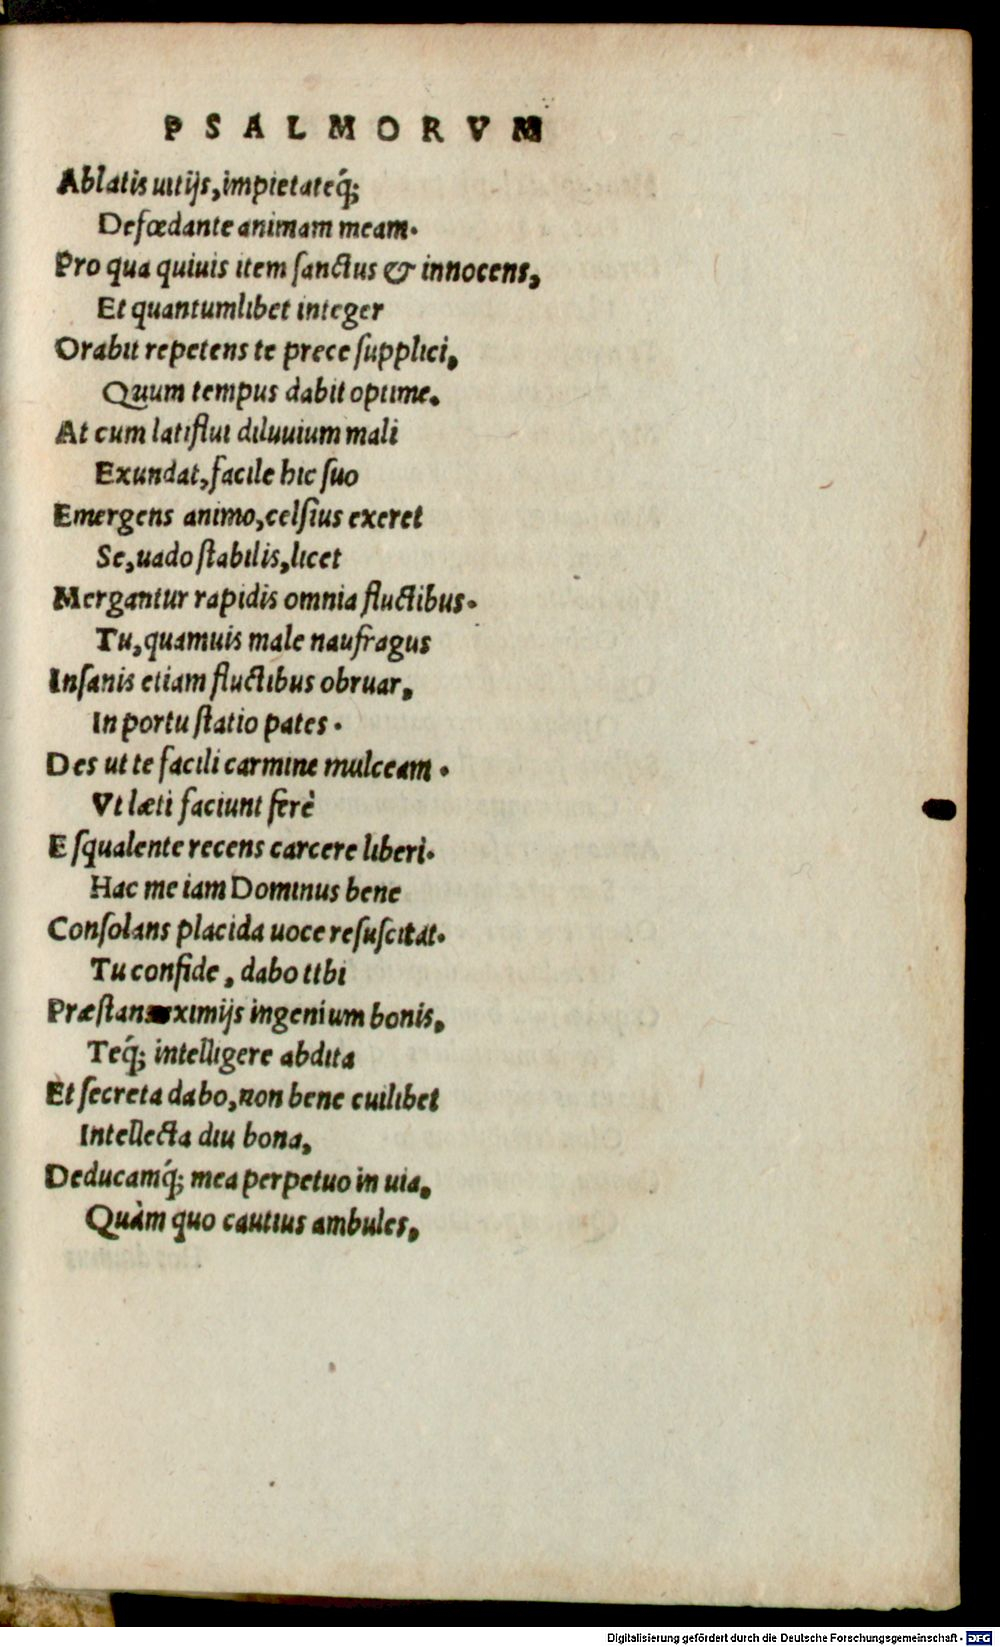 PSALMORVM
Ablatis uitijs, impietateq́;
Defœdante animam meam.
Pro qua quiuis item sanctus & innocens,
Et quantumlibet integer
Orabit repetens te prece supplici,
Quum tempus dabit optime.
At cum latiflui diluuium mali
Exundat, facile hic suo
Emergens animo, celsius exeret
Se, uado stabilis, licet
Mergantur rapidis omnia fluctibus.
Tu, quamuis male naufragus
Insanis etiam fluctibus obruar,
In portu statio pates.
Des ut te facili carmine mulceam.
Vt læti faciunt ferè
E squalente recens carcere liberi.
Hac me iam Dominus bene
Consolans placida uoce resuscitat.
Tu confide, dabo tibi
ingenium bonis,
Teq́; intelligere abdita
Et secreta dabo, non bene cuilibet
Intellecta diu bona,
Deducamq́; mea perpetuo in uia,
Quàm quo cautius ambules,
Digitalisierung gefördert durch die Deutsche Forschungsgemeinschaft - DFG